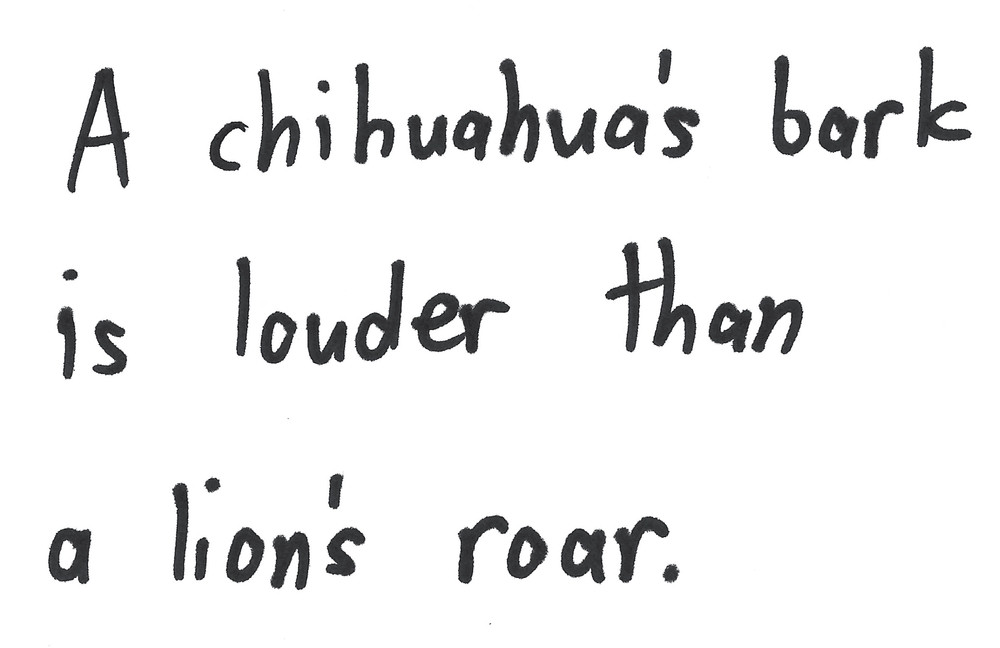 A chihuahua's bark
is louder than
a lion's roar.